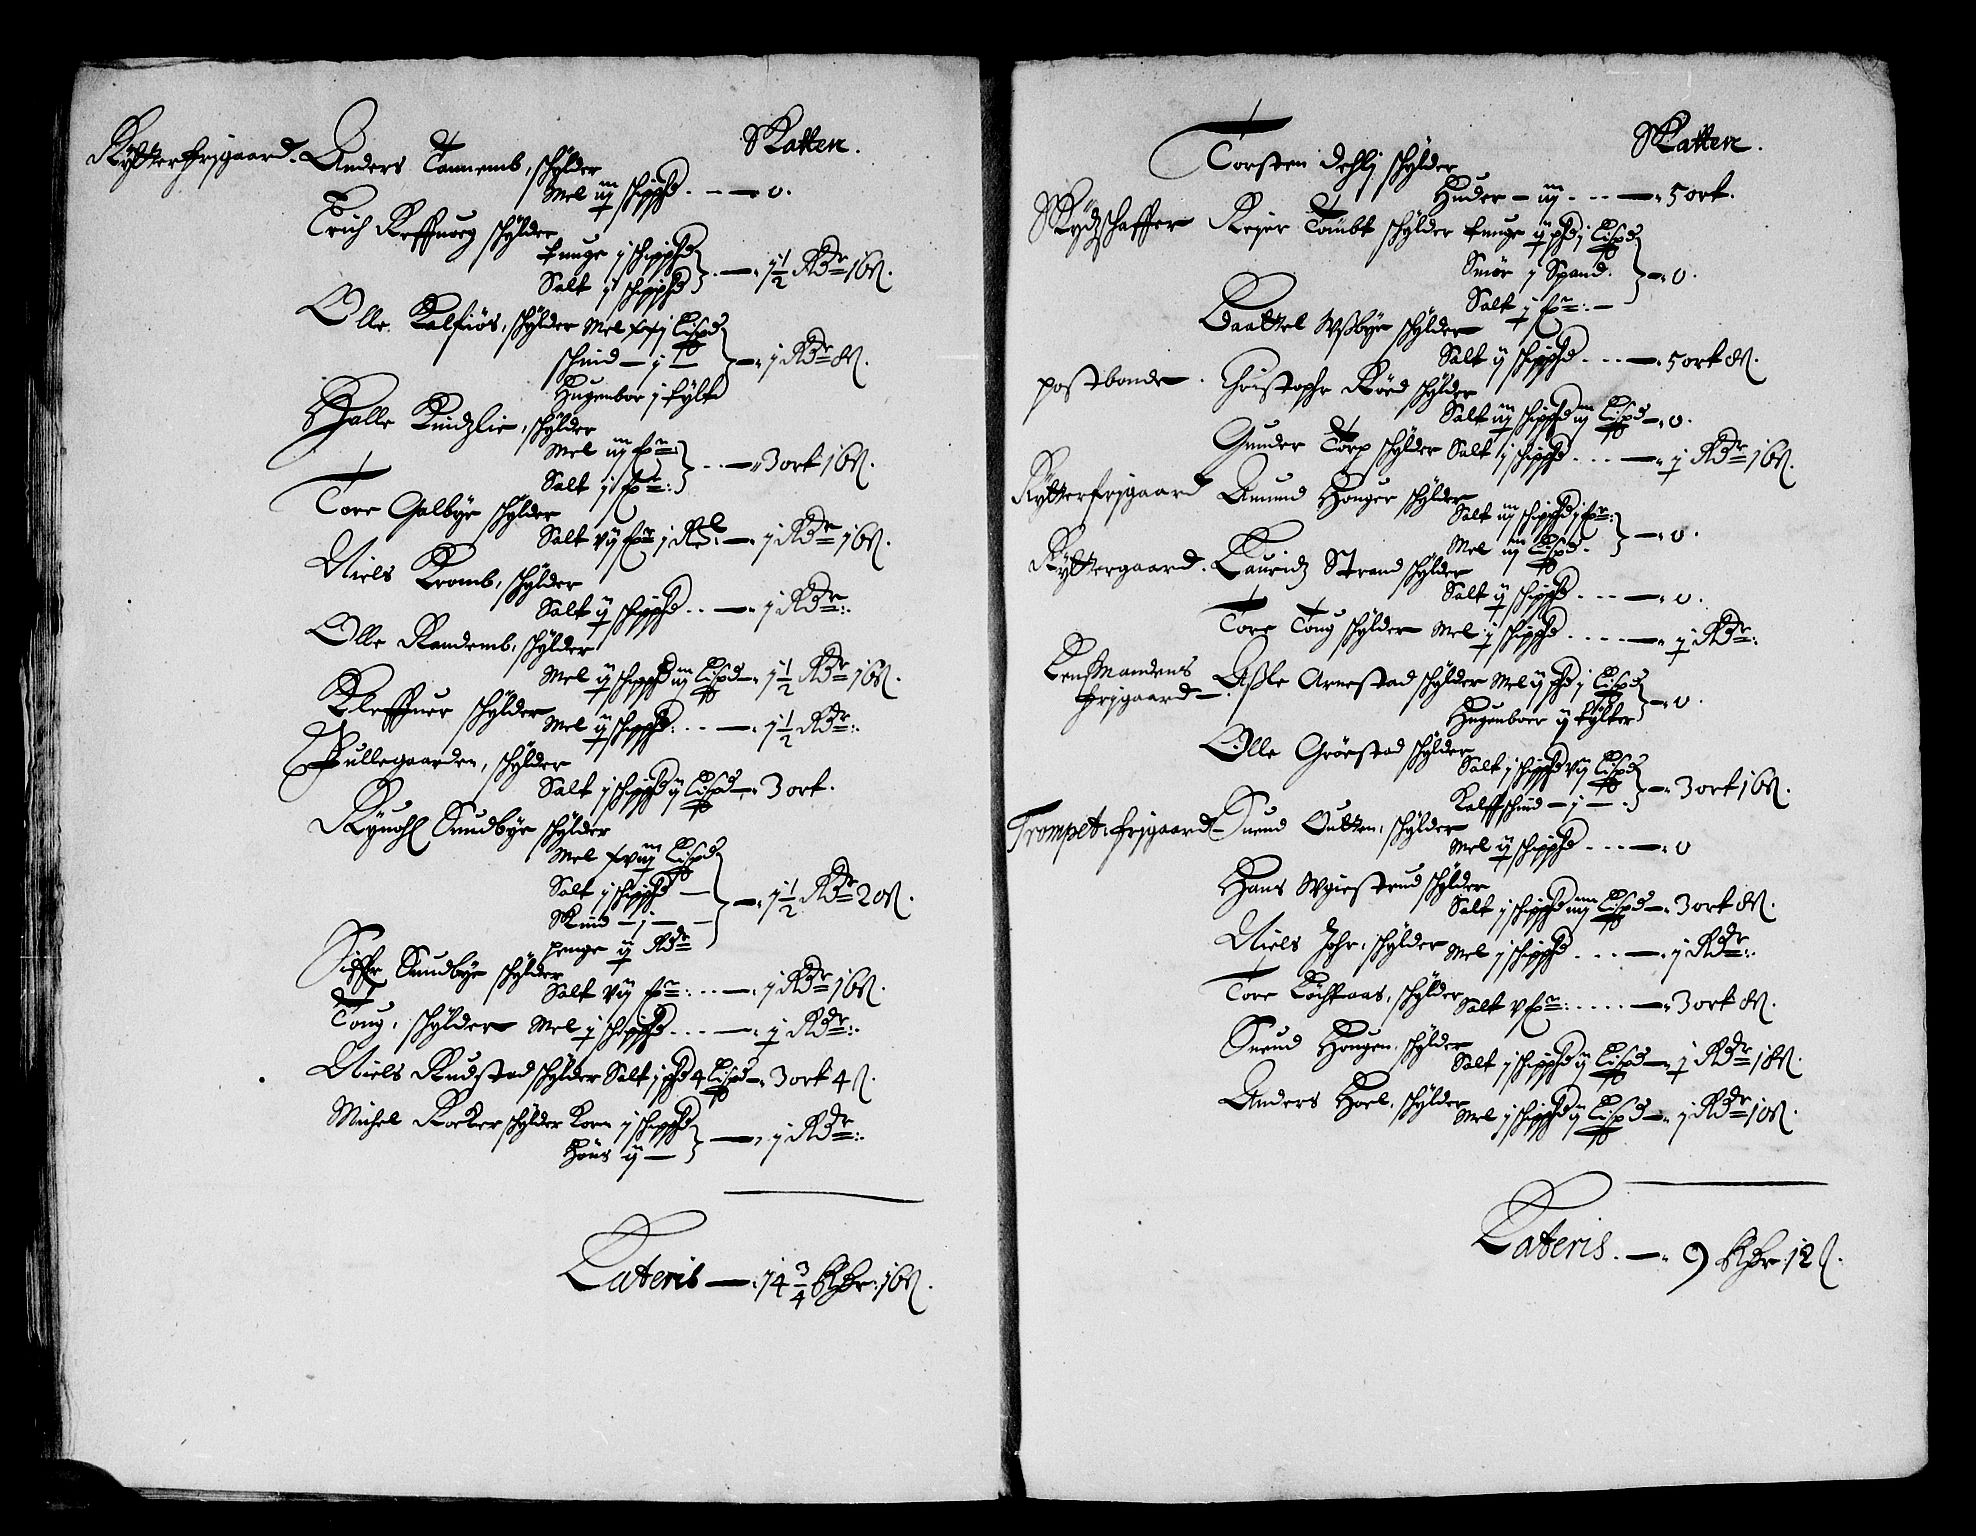 Skatten.
Rytterfrijgaard. Anders Tannemb, schylder
Mel iij schippd. - - — 0.
Erich Reffuoeg schylder
tunge j schippd
Salt j schippd } — 1½ Rdr 16 s.
Olle Kalfiös, schylder Mel xxj Lispd
schind — j —
Hugenboer j tylt } — j Rdr 8 s.
Halle Kindzlie, schylder
Mel iij fr:
Salt j fr: } - - — 3 ort 16 s.
Tore Galbye schylder
Salt vij fr j Rbl — j Rdr 16 s.
Niels Kromb, schylder
Salt ij schippd - - — j Rdr:
Olle Randemb, schylder
Mel ij schippd iij Lispd — 1½ Rdr 16 s.
Kleffuer schylder
Mel ij schippd: - - — 1½ Rdr:
Pullegaarden, schylder
Salt j schippd ij Lispd — 3 ort.
Sundbye schylder
Mel xviij Lispd
Salt j schippd —
Skind — j —
penge ij Rdr } — 1½ Rdr 20 s.
Siffr Sundbye schylder
Salt vij fr: - - — j Rdr 16 s.
Toug, schylder Mel j schippd - - — j Rdr:
Niels Rudstad schylder Salt j pd 4 Lispd — 3 ort 4 s.
Michel Rocker schylder Korn j schippd
Höns ij — } — j Rdr:
Lateris — 14¾ Rdr: 16 s.
Skatten.
Torsten Dehlj schylder
Huder — iij - - — 5 ort.
Skydzschaffer Rejer Tombt schylder tunge ij pd j Lispd
Smör j Spand.
Salt j fr: — } — 0.
Baattel Wssbye schylder
Salt ij schippd - - — 5 ort 8 s.
postbonde. Christopher Röed schylder
Salt iij schippd iij Lispd — 0.
Gunder Torp schylder Salt j schippd - - — j Rdr 16 s.
Rytterfrijgaard Amund Houger schylder
Salt iij schippd j fr:
Mel iij Lispd. } — 0.
Ryttergaard. Lauridz Strand schylder
Salt ij schippd - - — 0.
Tore Toug schylder Mel j schippd - - — j Rdr:
Lensmandens Assle Arnestad schylder Mel ij pd j Lispd
frijgaard — Hugenboer ij tylter } — 0.
Olle Gröestad schylder
Salt j schippd vij Lispd
Kalffschind — j — } — 3 ort 16 s.
Trompet: frijgaard — Suend Outten, schylder
Mel ij schippd - - — 0
Hans Wgiestrud schylder
Salt j schippd iiij Lispd — 3 ort 8 s.
Niels Johr, schylder Mel j schippd - - — j Rdr:
Tore Löchaas, schylder
Salt v fr: - - — 3 ort 8 s.
Suend Hougen, schylder
Salt j schippd ij Lispd — j Rdr 18 s.
Anders Hoel, schylder
Mel j schippd ij Lispd — j Rdr 10 s.
Lateris. — 9 Rdr: 12 s.